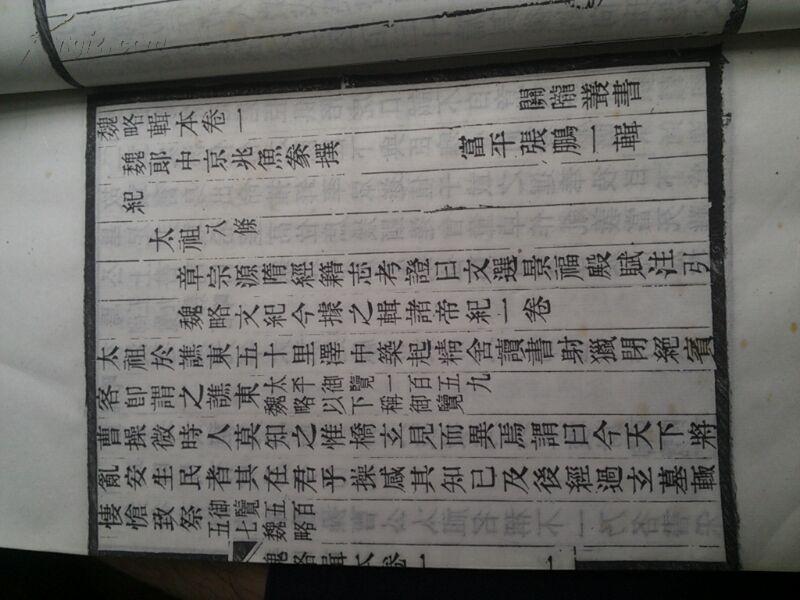 魏略輯本卷一 關隴叢書
魏郎中京兆魚豢撰 富平張鵬一輯
紀
太祖 八條
章宗源隋經籍志考證曰文選景福殿賦注引
魏略文紀今據之輯諸帝紀一卷
太祖於譙東五十里澤中築起精舍讀書射獵閉絕賓
客卽謂之譙東 太平御覽一百五九
魏略以下稱御覽
曹操微時人莫知之惟橋玄見而異焉謂曰今天下將
亂安生民者其在君乎操感其知己及後經過玄墓輒
悽愴致祭 御覽五百
五七魏略
魏略輯本卷一 一